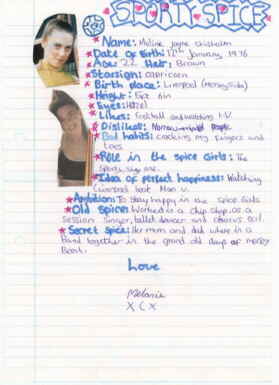 SPORTY SPICE
Name: Meline Jayne Chisholm
Date of Birth: 12th January 1976
Age: 22 Hair: Brown
Starsign: Capricorn
Birth place: Liverpool (Merseyside)
Height: 5ft 6in
Eyes: Hazel
Likes: Football and watching T.V.
Dislikes: Narrow-minded people
Bad habits: cracking my fingers and
toes
Role in the spice Girls: The
sporty one.
Idea of perfect happiness: Watching
Liverpool beat Man u.
Ambition: To stay happy in the Spice Girls
Old spice: Worked in a chip shop, as a
session singer, ballet dancer and chorus girl.
Secret spice: Her mum and dad where in a
band together in the grand old days of mersey
Beat.
Love
Melanie
X C X